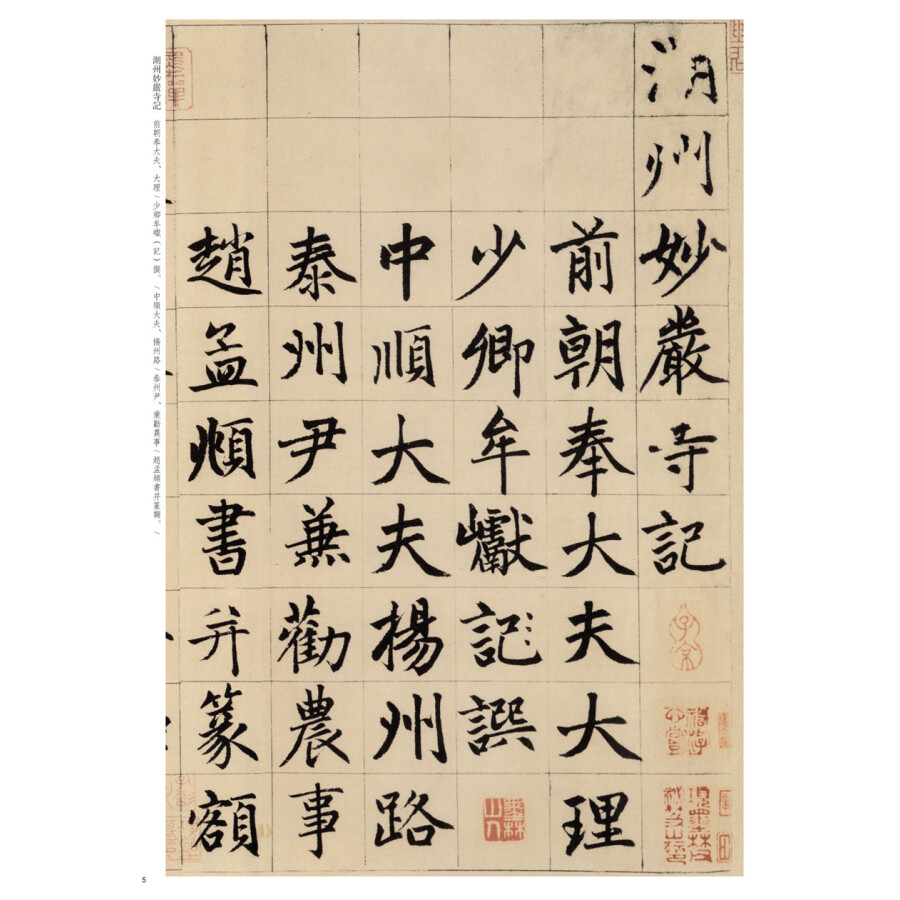 湖州妙嚴寺記
前朝奉大夫大理
少卿牟巘記譔
中順大夫楊州路
泰州尹兼勸農事
趙孟頫書并篆額
子京
墨林山人
湖州妙嚴寺記 前朝奉大夫、大理/少卿牟巘(記)撰。/中順大夫、揚州路/泰州尹、兼勸農事/趙孟頫書并篆額。/
5